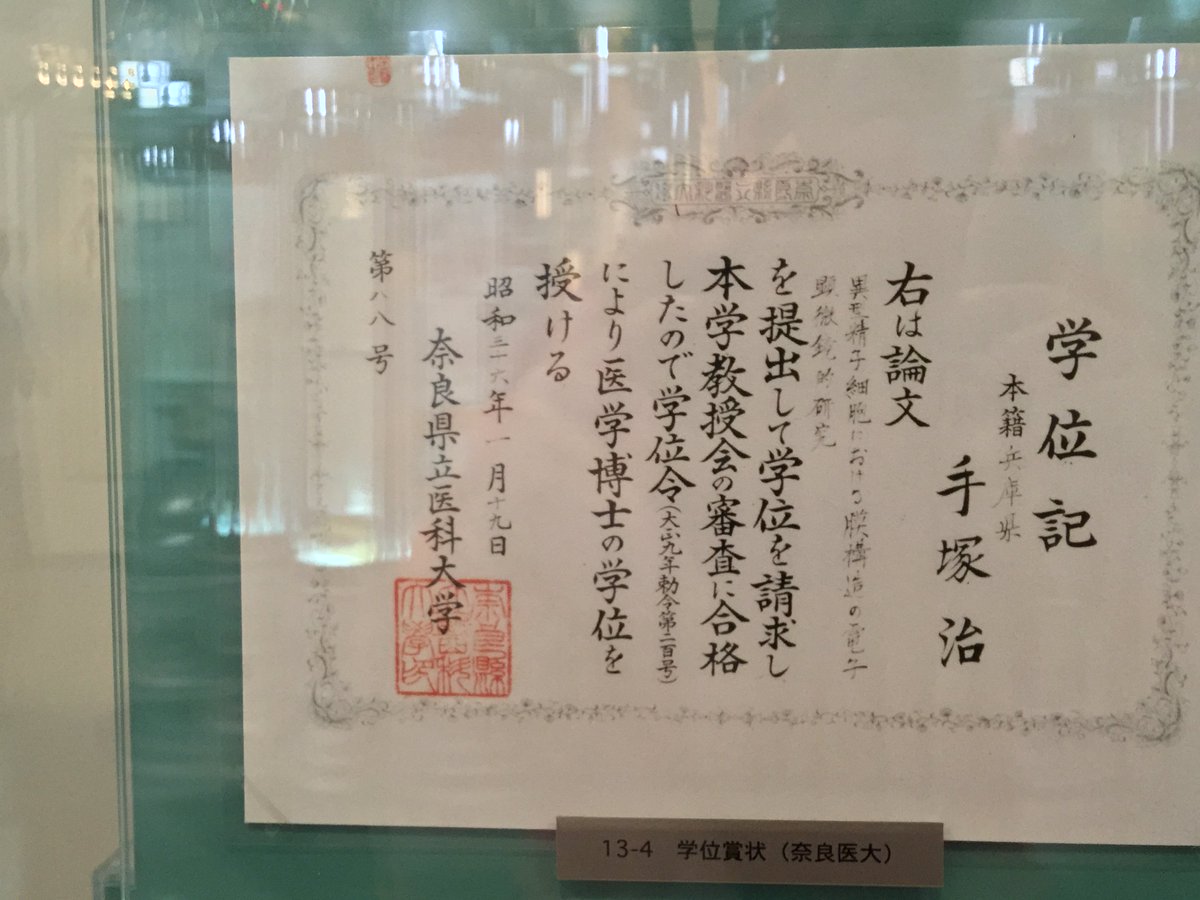 学位記
本籍 兵庫県
手塚治
右は論文
異型精子細胞における膜構造の電子
顕微鏡的研究
を提出して学位を請求し
本学教授会の審査に合格
したので学位令(大正九年勅令第二百号)
により医学博士の学位を
授ける
昭和三十六年一月十九日
奈良県立医科大学
第八八号
13-4 学位賞状(奈良医大)